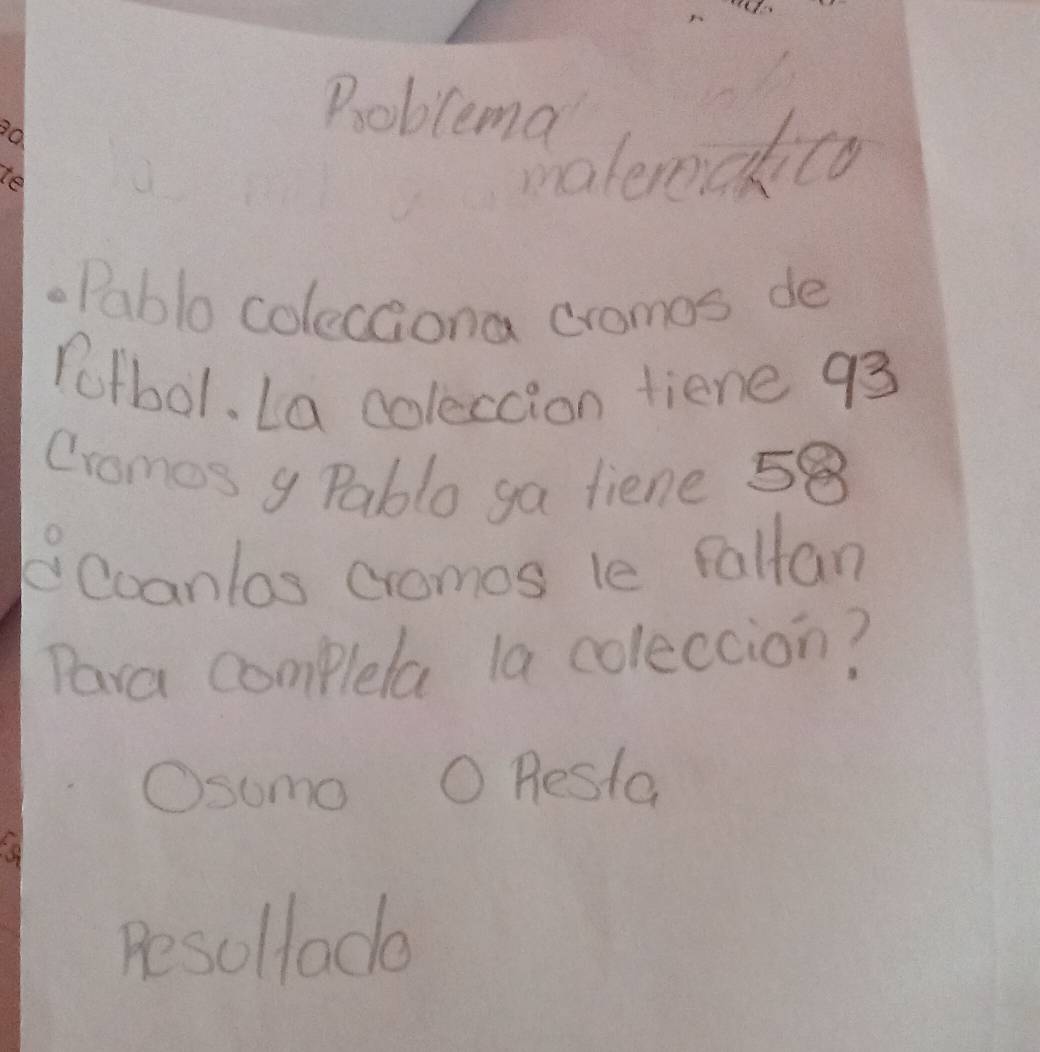 Problema
matematico
• Pablo colecciona cromos de
Fotbol. La coleccion tiene 93
Cromos y Pablo ya tiene 58
¿Coantos cromos le faltan
Para completa la colección?
O suma O Resta
Resoltado